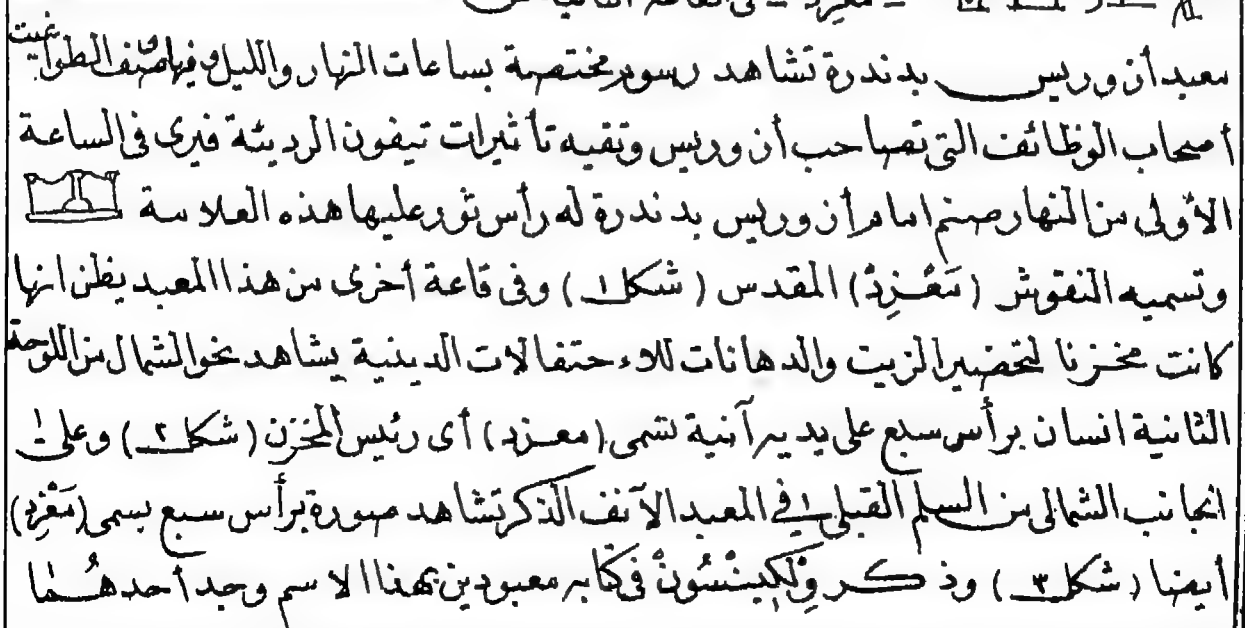 معزد - فى القاعة الثانية من
معبد أن وريس بدندرة تشاهد رسوم مختصة بساعات النهار والليل وفيها صنف الطوائيت
أصحاب الوظائف التى تصاحب أن وريس وتقيه تأثيرات تيفون الرديئة فيرى فى الساعة
الأولى من النهار صنم امام أن وريس بدندرة له رأس ثور عليها هذه العلامة
وتسميه النقوش (مَعْزِدْ) المقدس (شكل ١) وفى قاعة أخرى من هذا المعبد يظن انها
كانت مخزنا لتحضير الزيت والدهانات للاءحتفالات الدينية يشاهد نحو الشمال من اللوحة
الثانية انسان برأس سبع على يديه آنية تسمى (معزد) أى رئيس المخزن (شكل ٢) وعلى
الجانب الشمالى من السلم القبلى فى المعبد الآنف الذكر تشاهد صورة برأس سبع يسمى (مَعْزِد)
أيضا (شكل ٣) وذكر وِلْكِينْسُونْ فى كتابه معبودين بهذا الاسم وجد أحدهُما